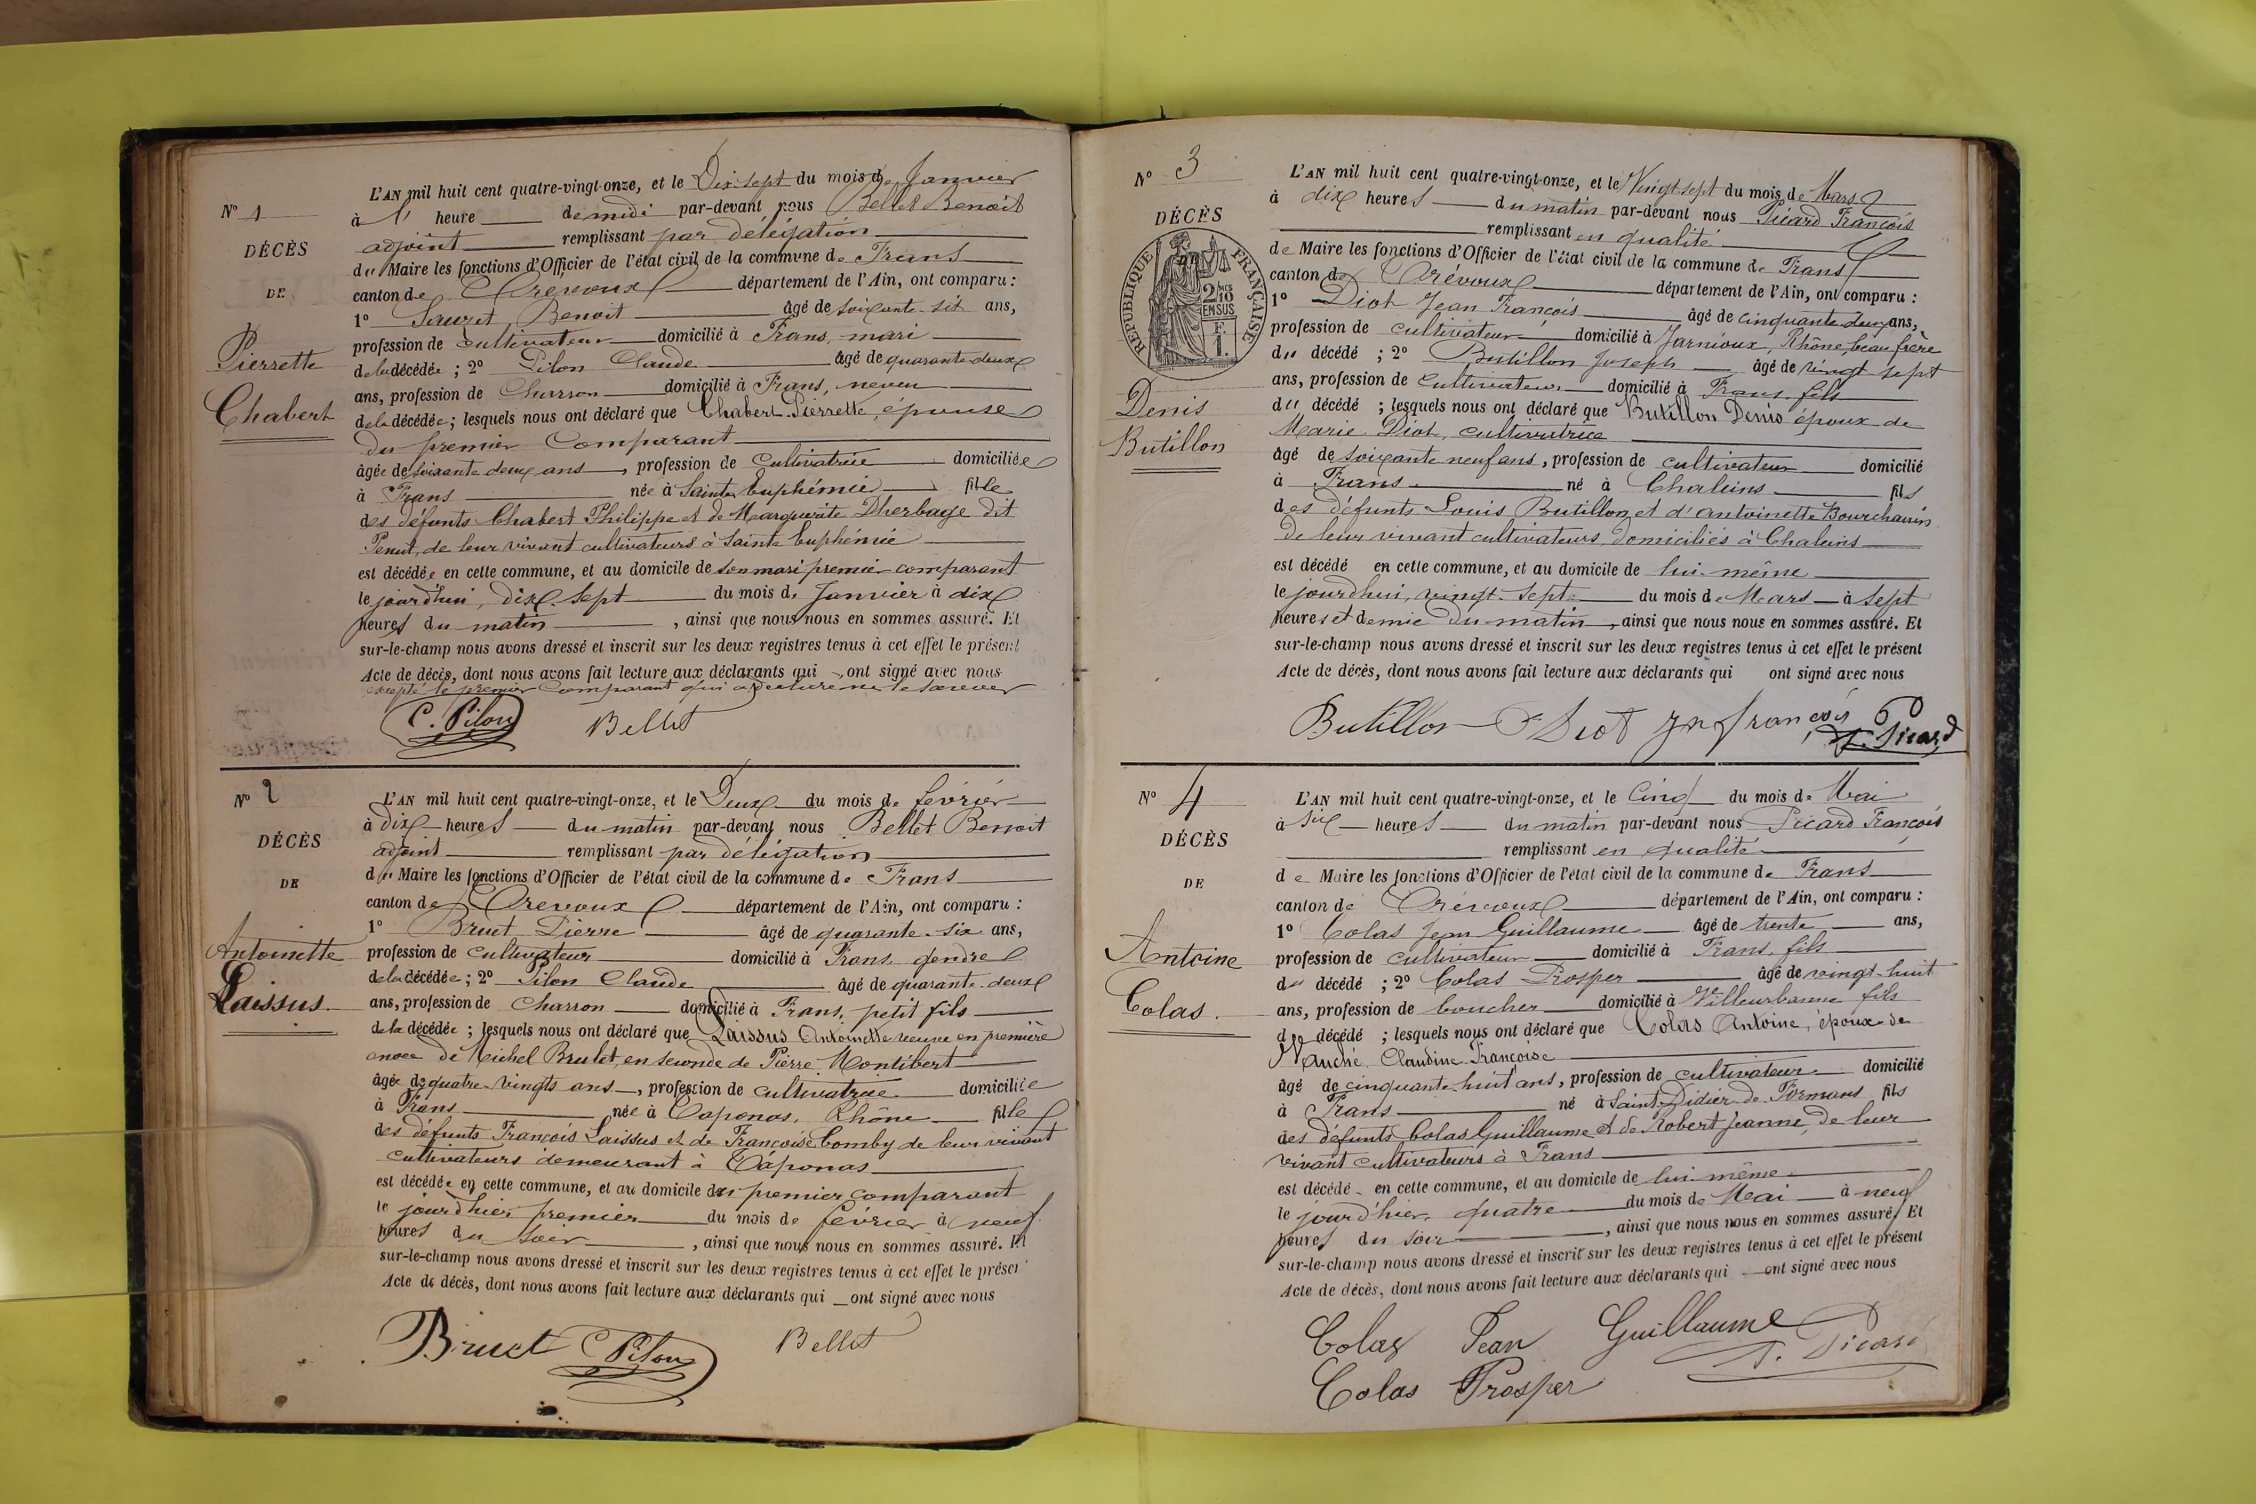 N° 1
DÉCÈS
DE
Pierrette
Chabert
L'AN mil huit cent quatre-vingt-onze, et le Dix-sept du mois de Janvier
à 1 heure de midi par-devant nous Bellet Benoit
adjoint remplissant par délégation
du Maire les fonctions d'Officier de l'état civil de la commune de Frans
canton de Trévoux département de l'Ain, ont comparu :
1° Sauzet Benoit âgé de soixante-six ans,
profession de cultivateur domicilié à Frans, mari
de la décédée ; 2° Pilon Claude âgé de quarante-deux
ans, profession de Charron domicilié à Frans, neveu
de la décédée ; lesquels nous ont déclaré que Chabert Pierrette, épouse
du premier Comparant
âgée de soixante deux ans, profession de Cultivatrice domiciliée
à Frans née à Sainte Euphémie fille
des défunts Chabert Philippe et de Marguerite Dherbage dit
Penut, de leur vivant cultivateurs à Sainte Euphémie
est décédée en cette commune, et au domicile de son mari premier comparant
le jourd'hui, dix-sept du mois de Janvier à dix
heures du matin, ainsi que nous nous en sommes assuré. Et
sur-le-champ nous avons dressé et inscrit sur les deux registres tenus à cet effet le présent
Acte de décès, dont nous avons fait lecture aux déclarants qui ont signé avec nous
excepté le premier Comparant qui a déclaré ne le savoir
C. Pilon Bellet
N° 2
DÉCÈS
DE
Antoinette
Laissus
L'AN mil huit cent quatre-vingt-onze, et le Deux du mois de février
à dix heures du matin par-devant nous Bellet Benoit
adjoint remplissant par délégation
du Maire les fonctions d'Officier de l'état civil de la commune de Frans
canton de Trévoux département de l'Ain, ont comparu :
1° Bruet Pierre âgé de quarante-six ans,
profession de cultivateur domicilié à Frans, gendre
de la décédée ; 2° Pilon Claude âgé de quarante-deux
ans, profession de Charron domicilié à Frans, petit fils
de la décédée ; lesquels nous ont déclaré que Laissus Antoinette veuve en première
noce de Michel Brulet, en seconde de Pierre Montibert
âgée de quatre-vingts ans, profession de cultivatrice domiciliée
à Frans née à Taponas, Rhône fille
des défunts François Laissus et de Françoise Comby de leur vivant
cultivateurs demeurant à Taponas
est décédée en cette commune, et au domicile du premier comparant
le jourd'hier, premier du mois de février à neuf
heures du soir, ainsi que nous nous en sommes assuré. Et
sur-le-champ nous avons dressé et inscrit sur les deux registres tenus à cet effet le présen
Acte de décès, dont nous avons fait lecture aux déclarants qui ont signé avec nous
Bruet C Pilon Bellet
N° 3
DÉCÈS
RÉPUBLIQUE FRANÇAISE
2/10
EN SUS
F.
1.
Denis
Butillon
L'AN mil huit cent quatre-vingt-onze, et le Vingt-sept du mois de Mars
à dix heures du matin par-devant nous Picard François
remplissant en qualité
de Maire les fonctions d'Officier de l'état civil de la commune de Frans
canton de Trévoux département de l'Ain, ont comparu :
1° Diot Jean François âgé de cinquante-deux ans,
profession de cultivateur domicilié à Jarnioux, Rhône, beau frère
du décédé ; 2° Butillon Joseph âgé de vingt-sept
ans, profession de cultivateur domicilié à Frans, fils
du décédé ; lesquels nous ont déclaré que Butillon Denis époux de
Marie Diot, cultivatrice
âgé de soixante neuf ans, profession de cultivateur domicilié
à Frans né à Chaleins fils
des défunts Louis Butillon et d'antoinette Bourchanin
de leur vivant cultivateurs domiciliés à Chaleins
est décédé en cette commune, et au domicile de lui-même
le jourd'hui, vingt-sept du mois de Mars à sept
heures et demie du matin, ainsi que nous nous en sommes assuré. Et
sur-le-champ nous avons dressé et inscrit sur les deux registres tenus à cet effet le présent
Acte de décès, dont nous avons fait lecture aux déclarants qui ont signé avec nous
Butillon Diot Jn françois F. Picard
N° 4
DÉCÈS
DE
Antoine
Colas
L'AN mil huit cent quatre-vingt-onze, et le Cinq du mois de Mai
à six heures du matin par-devant nous Picard François
remplissant en qualité
de Maire les fonctions d'Officier de l'état civil de la commune de Frans
canton de Trévoux département de l'Ain, ont comparu :
1° Colas Jean Guillaume âgé de trente ans,
profession de cultivateur domicilié à Frans, fils
du décédé ; 2° Colas Prosper âgé de vingt-huit
ans, profession de boucher domicilié à Villeurbanne fils
du décédé ; lesquels nous ont déclaré que Colas Antoine, époux de
Claudine Françoise
âgé de cinquante-huit ans, profession de cultivateur domicilié
à Frans né à Saint-Didier-de-Formans fils
des défunts Colas Guillaume et de Robert Jeanne, de leur
vivant cultivateurs à Frans
est décédé en cette commune, et au domicile de lui-même
le jourd'hier, quatre du mois de Mai à neuf
heures du soir, ainsi que nous nous en sommes assuré. Et
sur-le-champ nous avons dressé et inscrit sur les deux registres tenus à cet effet le présent
Acte de décès, dont nous avons fait lecture aux déclarants qui ont signé avec nous
Colas Jean Guillaume
Colas Prosper F. Picard